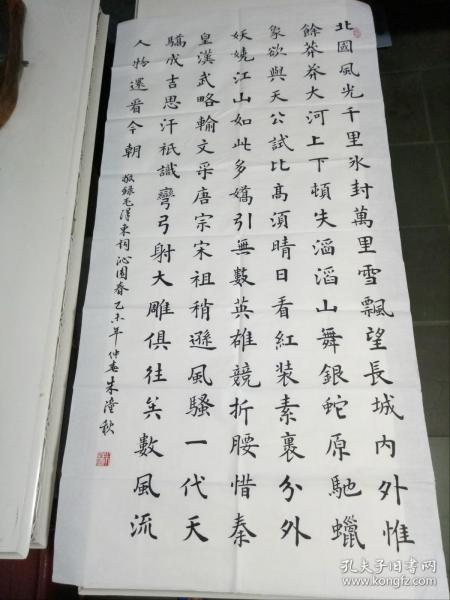 北國風光千里氷封萬里雪飄望長城內外惟
餘莽莽大河上下頓失滔滔山舞銀蛇原馳蠟
象欲與天公試比高須晴日看紅装素裹分外
妖嬈江山如此多嬌引無數英雄競折腰惜秦
皇漢武略輸文采唐宗宋祖稍遜風騷一代天
驕成吉思汗祇識彎弓射大雕俱往矣數風流
人物還看今朝 敬錄毛澤東詞沁園春乙未年仲春朱潼秋
孔夫子旧书网
www.kongfz.com